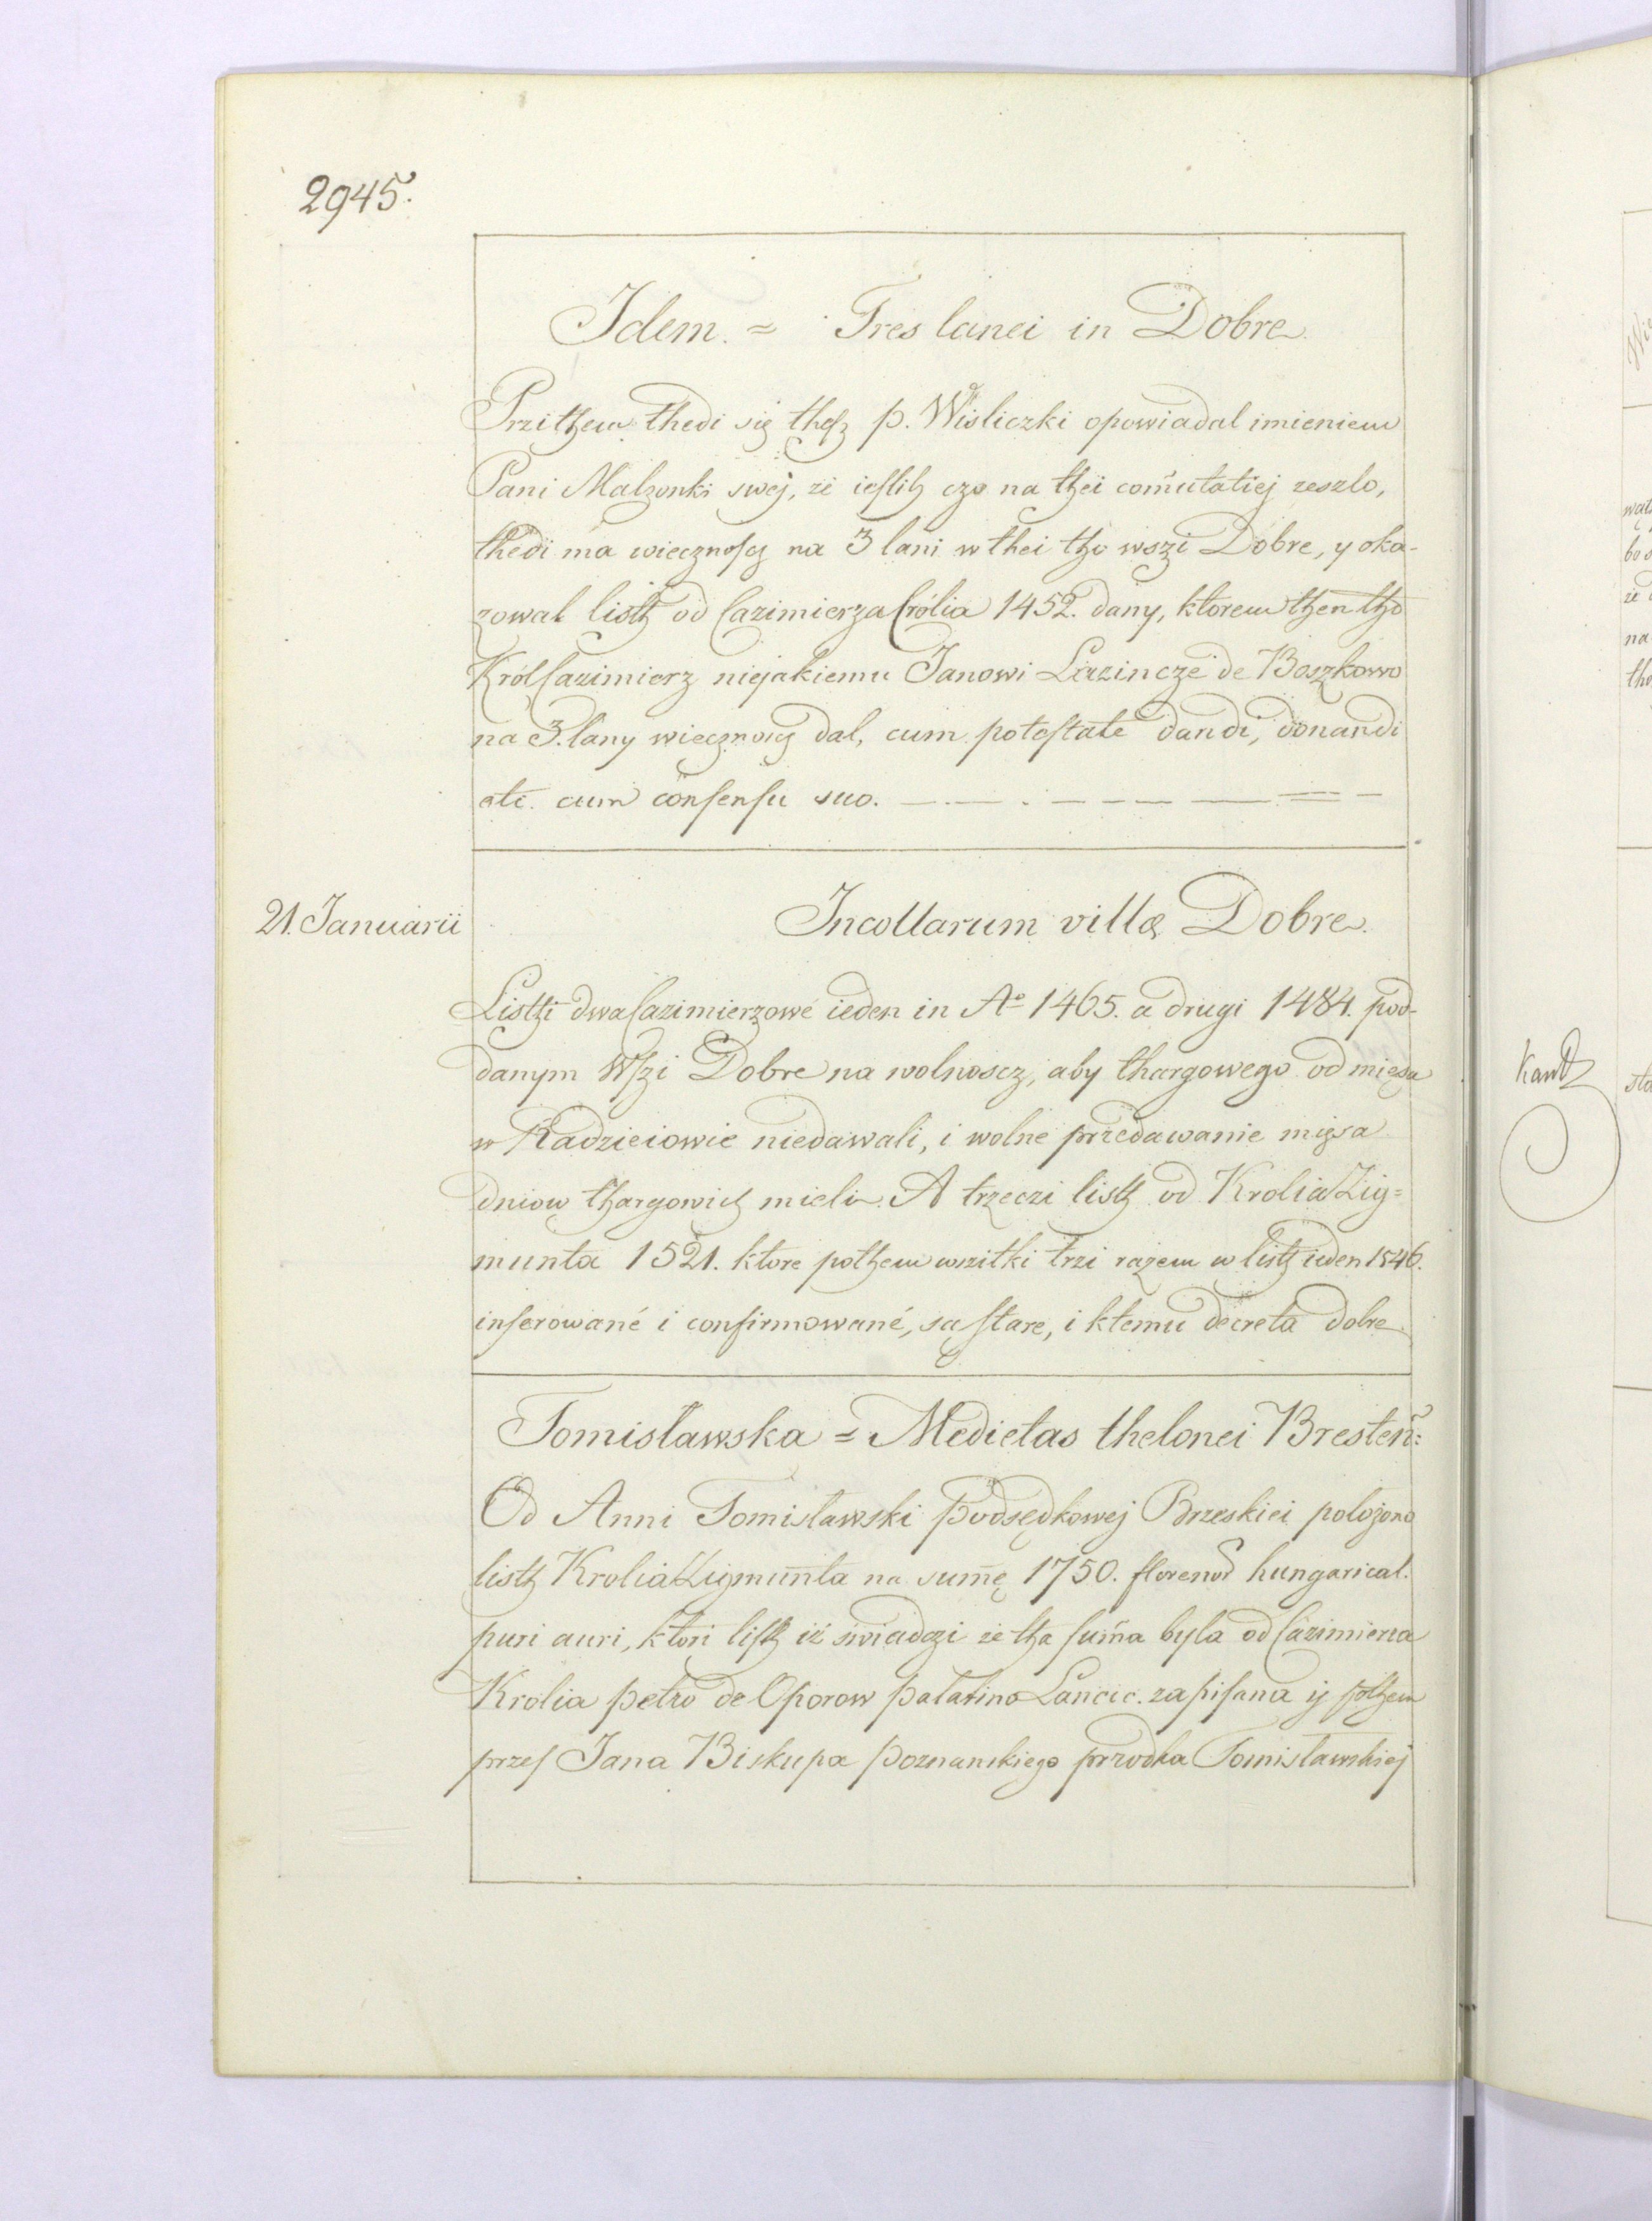 2945.
Idem. = Tres lanei in Dobre.
Przithem thedi się thesz p. Wisliczki opowiadal imieniem
Pani Malzonki swej, zé ieslith czo na theí com̄utatiej zeszlo,
thedi ma wiecznoscz na 3 lani w thei tho wszi Dobre, y oka-
zowal listh od Cazimierza Crólia 1452. dany, ktorem then tho
Król Cazimierz niejakiemu Janowi de Boszkowo
na 3. lany wiecznoscz dal, cum potestate dandi, donandi
etc. cum consensu suo.
21. Januarii
Incollarum villæ Dobre.
Listhi dwa Cazimierzowé ieden in Aº 1465. a drugi 1484. pod-
danym Wszi Dobre na wolnoscz, aby thargowego od mięsa
w Radzieiowie niedawali, i wolne przedawanie mięsa
dniow thargowich mieli. A trzeczi listh od Krolia Zig=
munta 1521. ktore pothem wszitki trzi razem w listh ieden 1546.
inserowané i confirmowané, są stare, i ktemu decreta dobre
Tomisławska = Medietas thelonei Bresten̄:
Od Anni Tomisławski Podsędkowej Brzeskiei polożono
listh Krolia Zigmun̄ta na sum̄ę 1750. florenor hungarical.
puri auri, ktori listh iż świadczi że tha sum̄a byla od Cazimierza
Krolia Petro de Oporow Palatino Lancic. zapisana ij pothem
przes Jana Biskupa Poznanskiego przodka Tomisławskiej